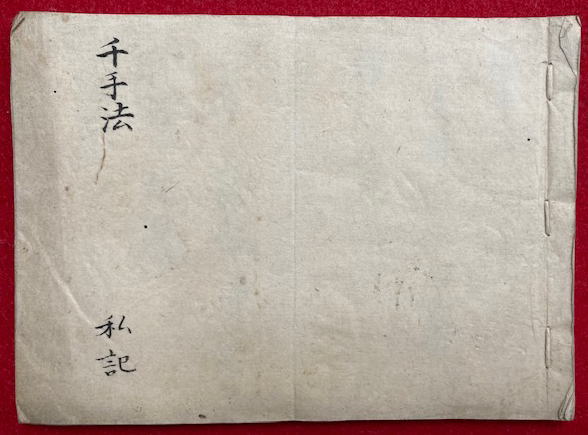 千手法
私記